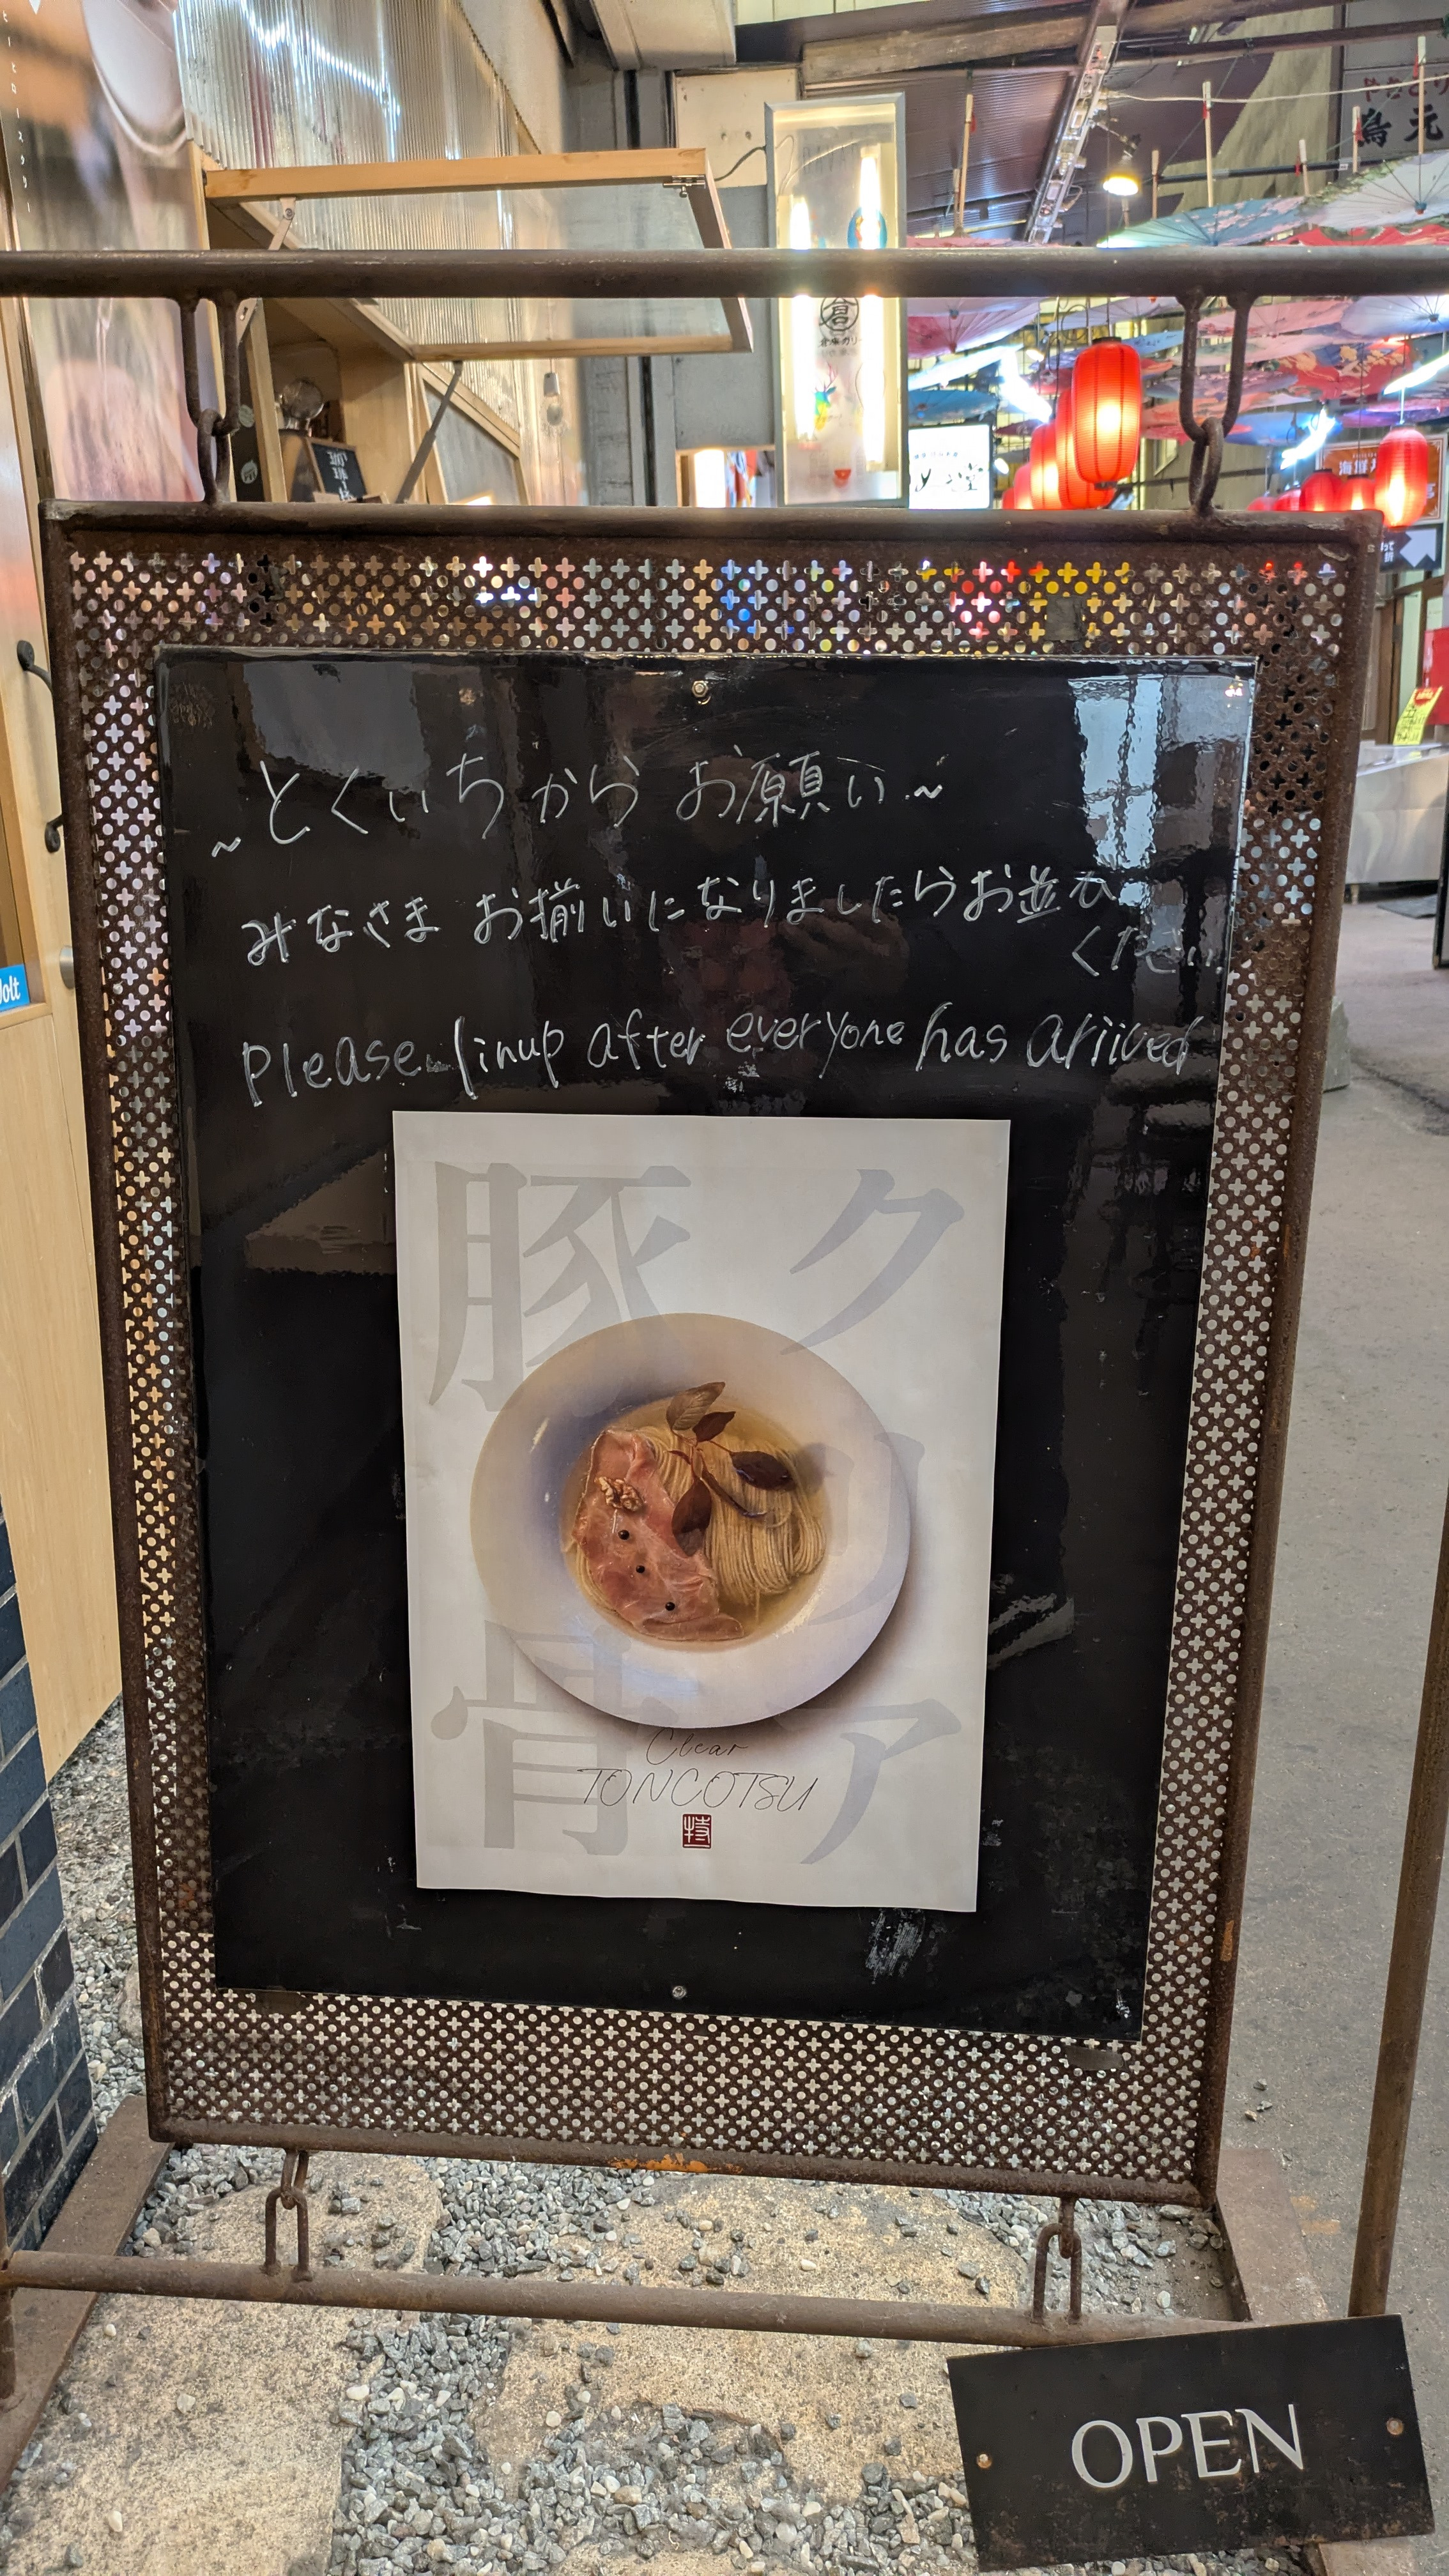 ～とくいちからお願い～
みなさま お揃いになりましたらお並び
ください
Please linup after everyone has ariived
クリア
豚骨
Clear
TONCOTSU
特
OPEN
鳥元
倉
Wolt